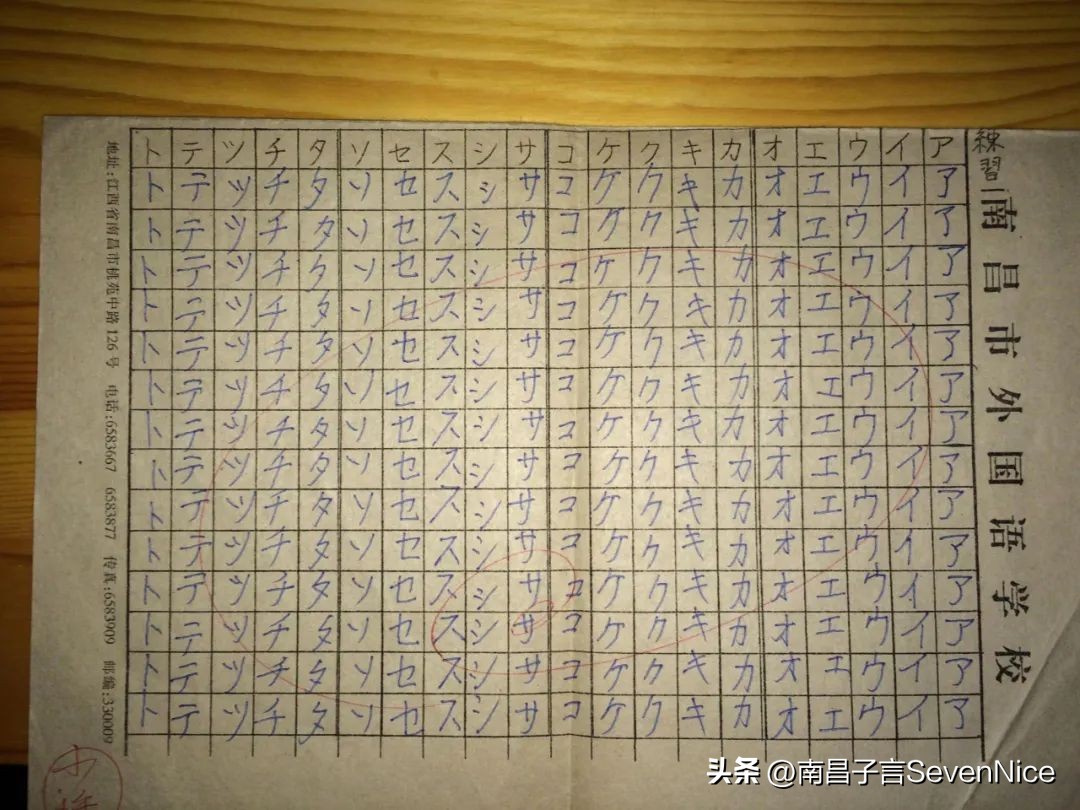 練習
南昌市外国语学校
アアアアアアアアアアアアアアア
イイイイイイイイイイイイイイイ
ウウウウウウウウウウウウウウウ
エエエエエエエエエエエエエエエ
オオオオオオオオオオオオオオオ
カカカカカカカカカカカカカカカ
キキキキキキキキキキキキキキキ
ククククククククククククククク
ケケケケケケケケケケケケケケケ
コココココココココココココココ
サササササササササササササササ
シシシシシシシシシシシシシシシ
ススススススススススススススス
セセセセセセセセセセセセセセセ
ソソソソソソソソソソソソソソソ
タタタタタタタタタタタタタタタ
チチチチチチチチチチチチチチチ
ツツツツツツツツツツツツツツツ
テテテテテテテテテテテテテテテ
トトトトトトトトトトトトトトト
地址:江西省南昌市桃苑中路126号 电话:6583667 6583877 传真:6583909 邮编:330009
头条 @南昌子言SevenNice